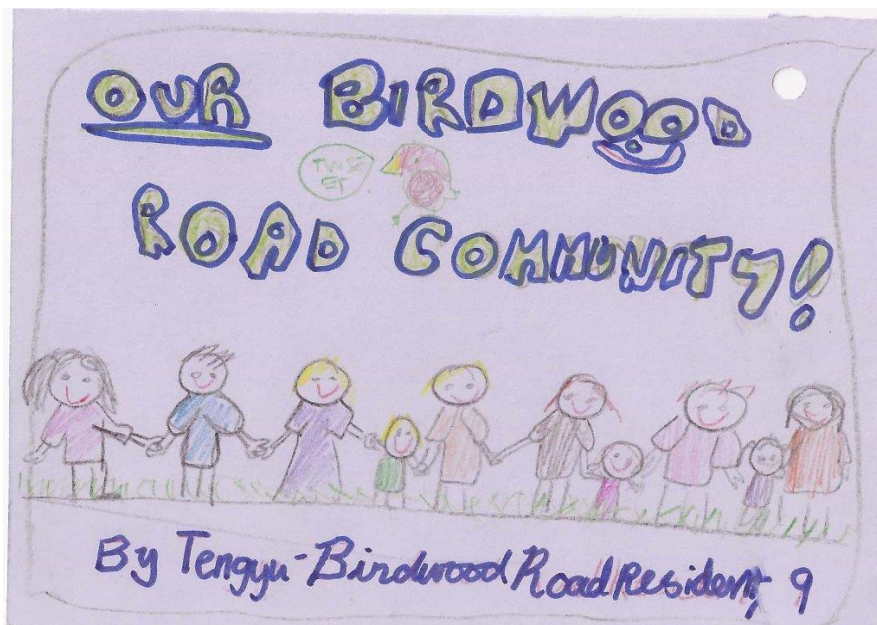 OUR BIRDWOOD
TWEET
ROAD COMMUNITY!
By Tengyu-Birdwood Road Resident, 9